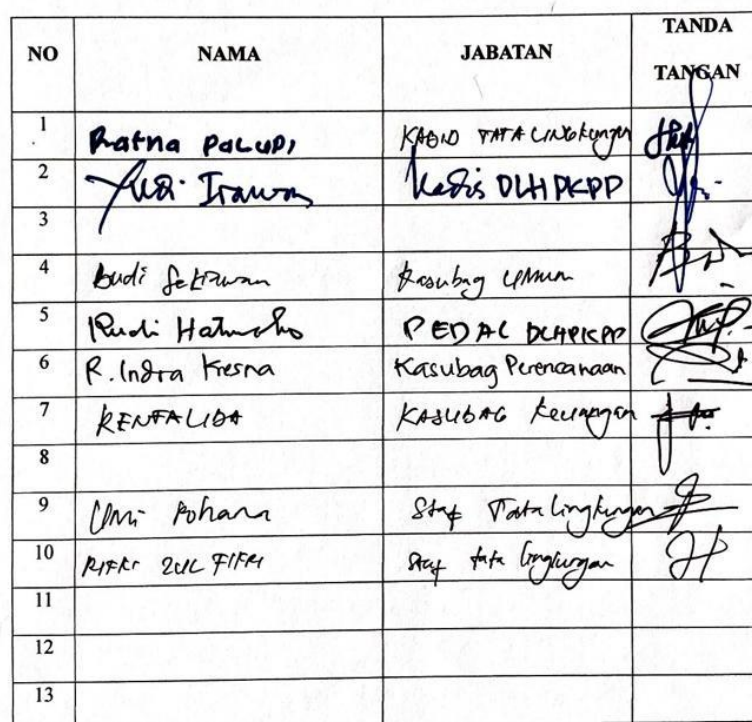 NO NAMA JABATAN TANDA TANGAN
1 Ratna PALUPI KABID TATA LINGkungan
2 Yudi Irawan Kadis DLHPKPP
3
4 Budi Setiawan Kasubag UMUM
5 Rudi PEDAL DLHPKPP
6 R. Indra Kresna Kasubag Perencanaan
7 RENFALIDA KASUBAG Keuangan
8
9 Umi Staf Tata lingkungan
10 RIFKI ZULFIKRI Staf tata lingkungan
11
12
13